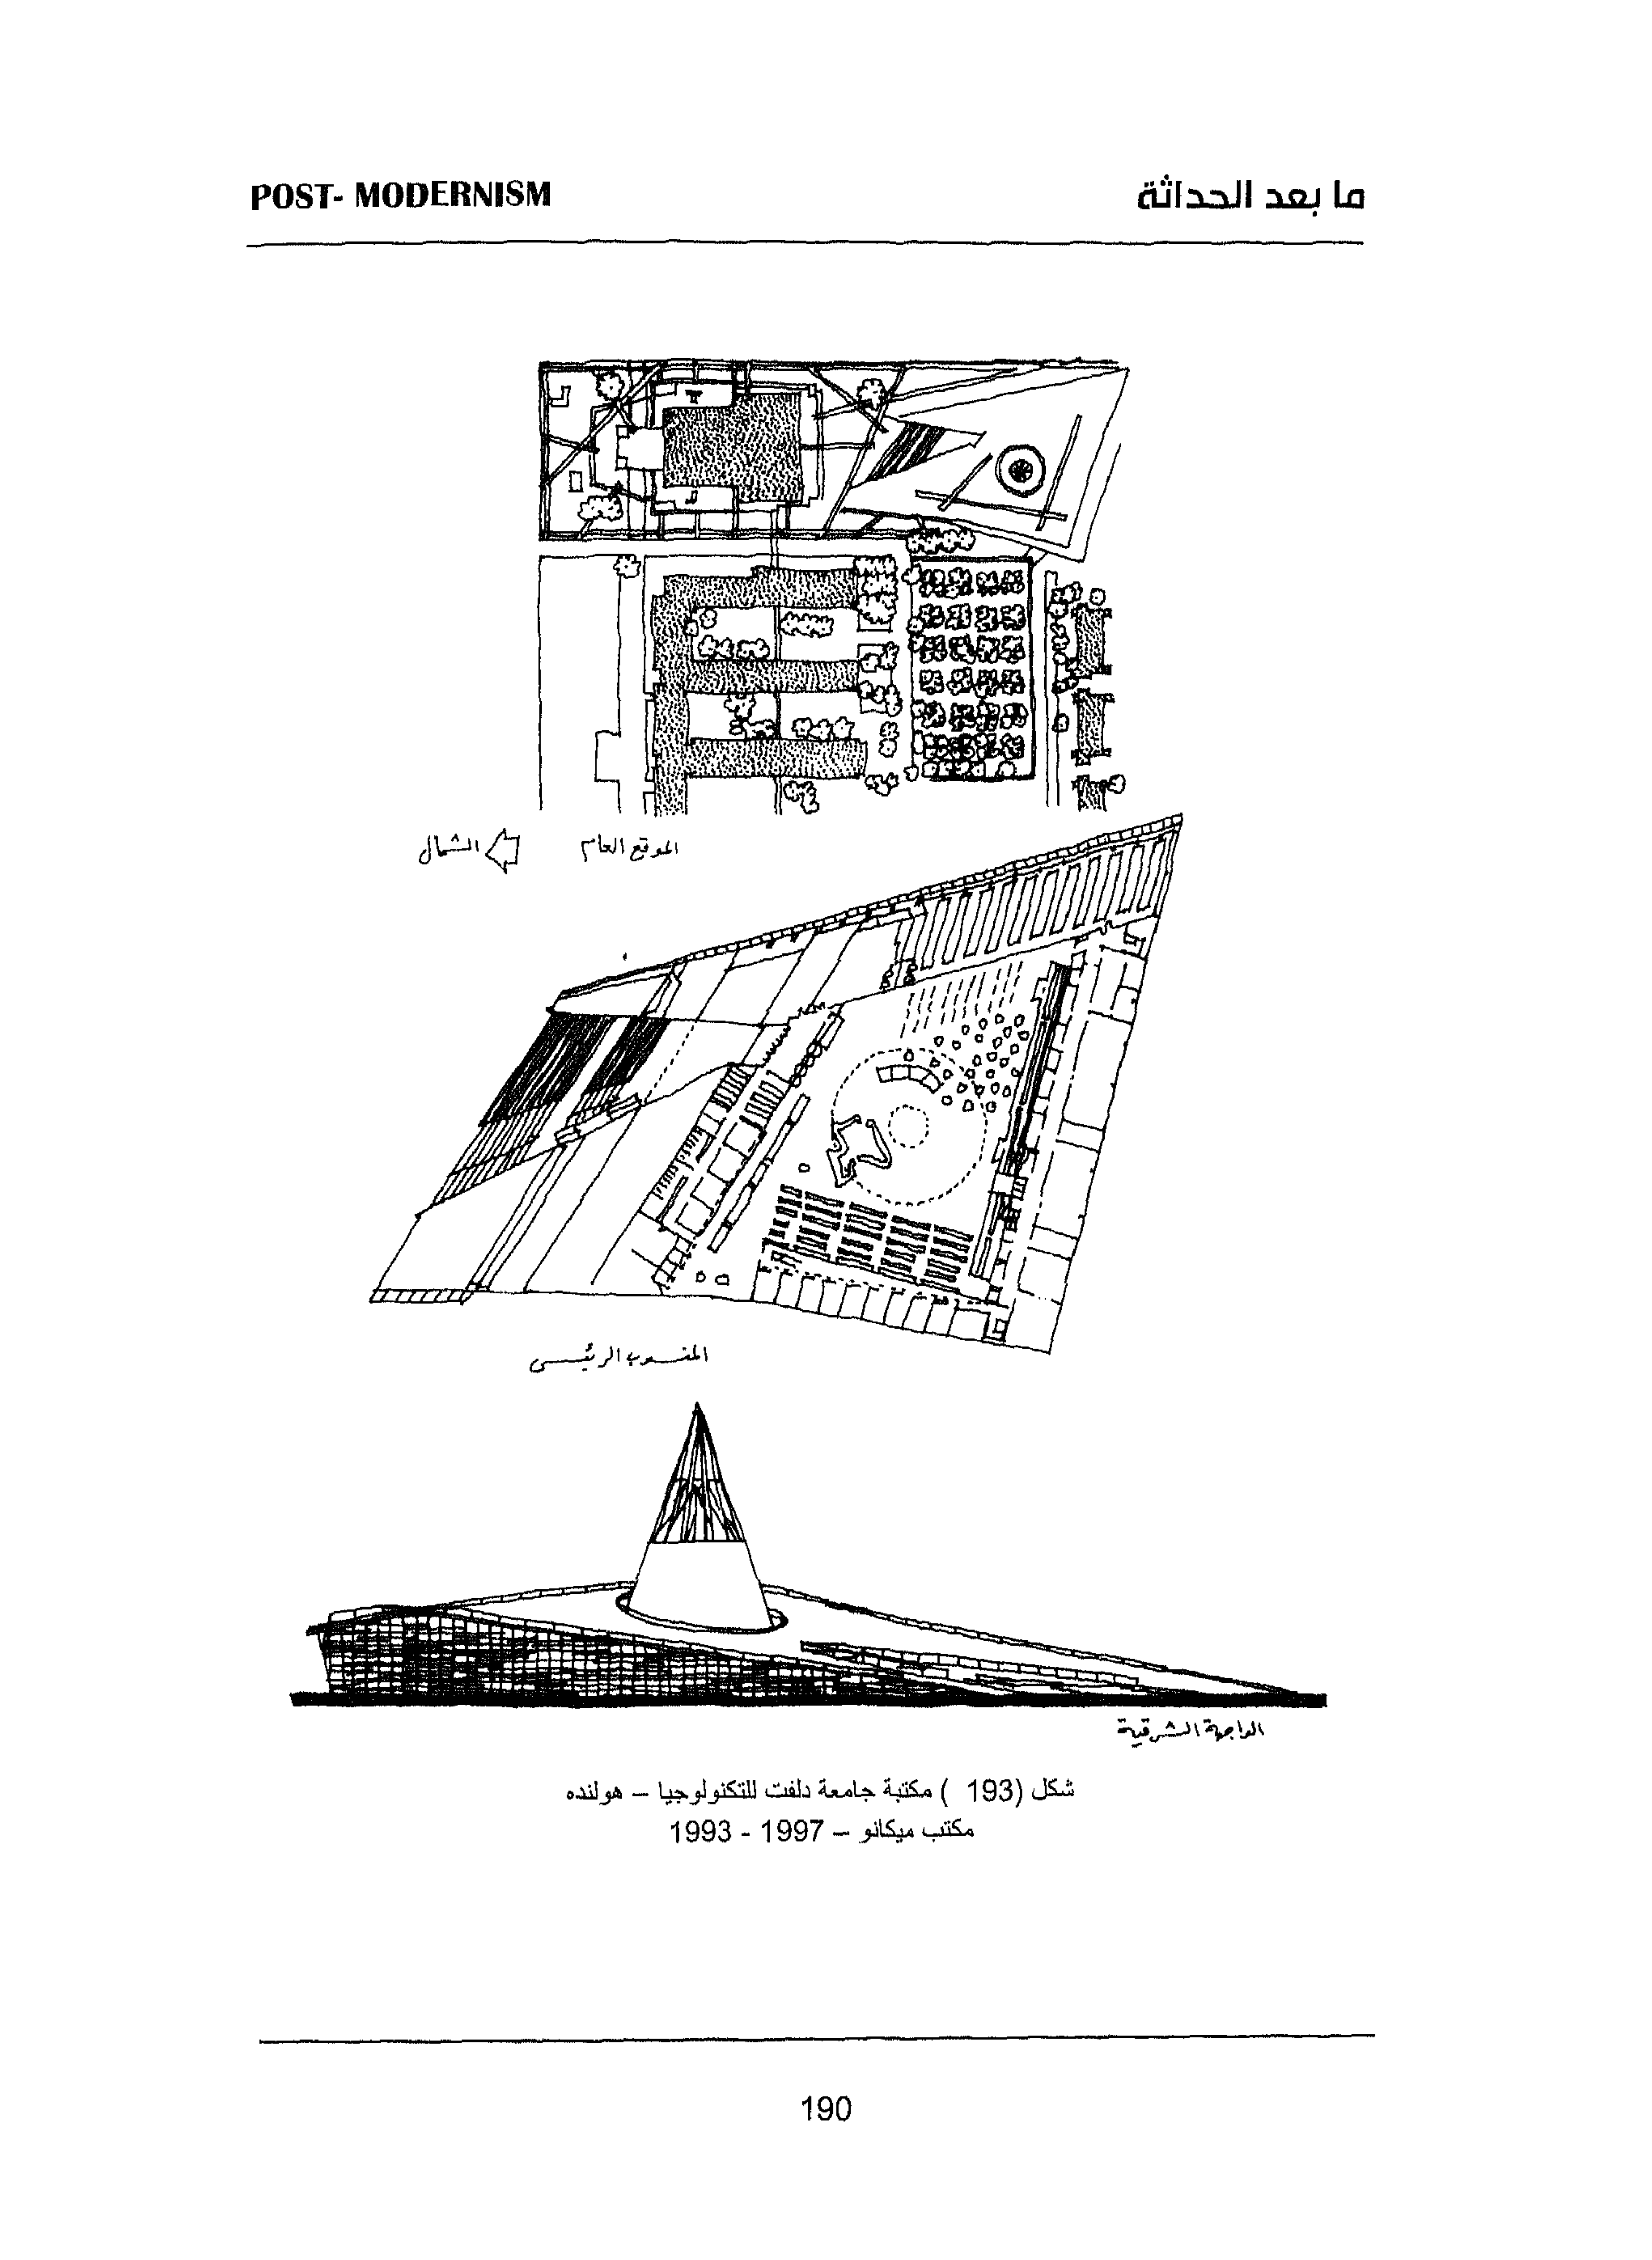 POST- MODERNISM
ما بعد الحداثة
الموقع العام
الشمال
المنسوب الرئيسى
الواجهة الشرقية
شكل (193 ) مكتبة جامعة دلفت للتكنولوجيا – هولنده
مكتب ميكانو – 1997 - 1993
190